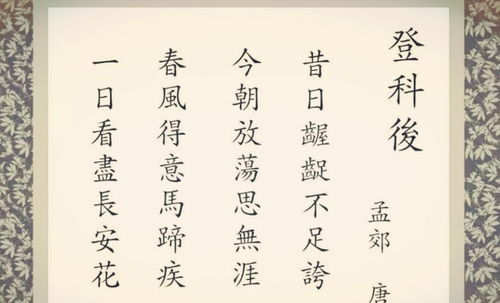 登科後
孟郊 唐
昔日齷齪不足誇
今朝放蕩思無涯
春風得意馬蹄疾
一日看盡長安花